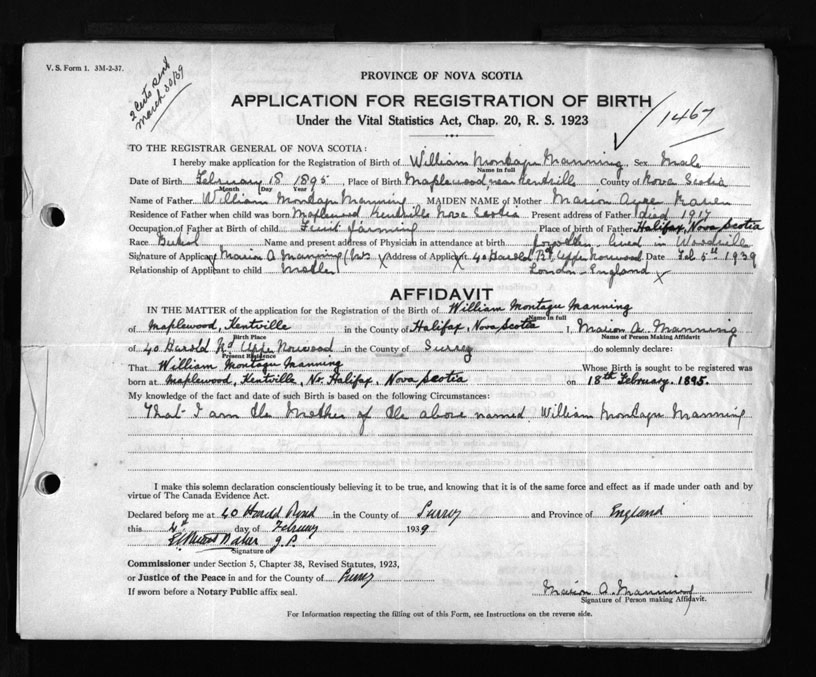 V. S. Form 1. 3M-2-37.
2 Certs sent
March 30/39
PROVINCE OF NOVA SCOTIA
APPLICATION FOR REGISTRATION OF BIRTH
Under the Vital Statistics Act, Chap. 20, R. S. 1923
1467
TO THE REGISTRAR GENERAL OF NOVA SCOTIA:
I hereby make application for the Registration of Birth of William Montagu Manning, Sex Male
Name in full
Date of Birth February 18 1895, Place of Birth Maplewood, near Kentville County of Nova Scotia
Month Day Year
Name of Father William Montagu Manning MAIDEN NAME of Mother Marion
Residence of Father when child was born Maplewood Kentville Nova Scotia Present address of Father died 1917
Occupation of Father at Birth of child Fruit farming Place of birth of Father Halifax, Nova Scotia
Race British Name and present address of Physician in attendance at birth forgotten. lived in Woodville
Signature of Applicant Marion A Manning (Mrs X Address of Applicant X 40 Harold Rd, Upper Norwood Date Feb 5th 1939
Relationship of Applicant to child Mother London - England X
AFFIDAVIT
IN THE MATTER of the application for the Registration of the Birth of William Montagu Manning
Name in full
of Maplewood, Kentville in the County of Halifax, Nova Scotia I, Marion A. Manning
Birth Place Name of Person Making Affidavit
of 40 Harold Rd Upper Norwood in the County of Surrey do solemnly declare:
Present Residence
That William Montagu Manning Whose Birth is sought to be registered was
born at Maplewood, Kentville, Nr. Halifax, Nova Scotia on 18th February. 1895.
My knowledge of the fact and date of such Birth is based on the following Circumstances:
That I am the Mother of the above named William Montagu Manning
I make this solemn declaration conscientiously believing it to be true, and knowing that it is of the same force and effect as if made under oath and by
virtue of The Canada Evidence Act.
Declared before me at 40 Harold Road in the County of Surrey and Province of England
this 4th day of February 1939
Baker J.P.
Signature of
Commissioner under Section 5, Chapter 38, Revised Statutes, 1923,
or Justice of the Peace in and for the County of Surrey
If sworn before a Notary Public affix seal.
Marion A. Manning
Signature of Person making Affidavit.
For Information respecting the filling out of this Form, see Instructions on the reverse side.